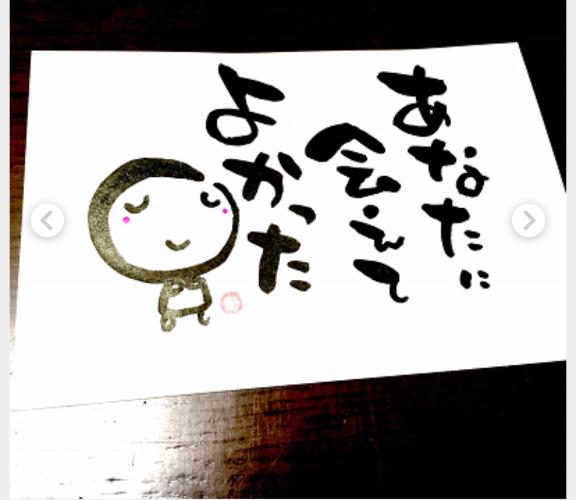 あなたに
会えて
よかった